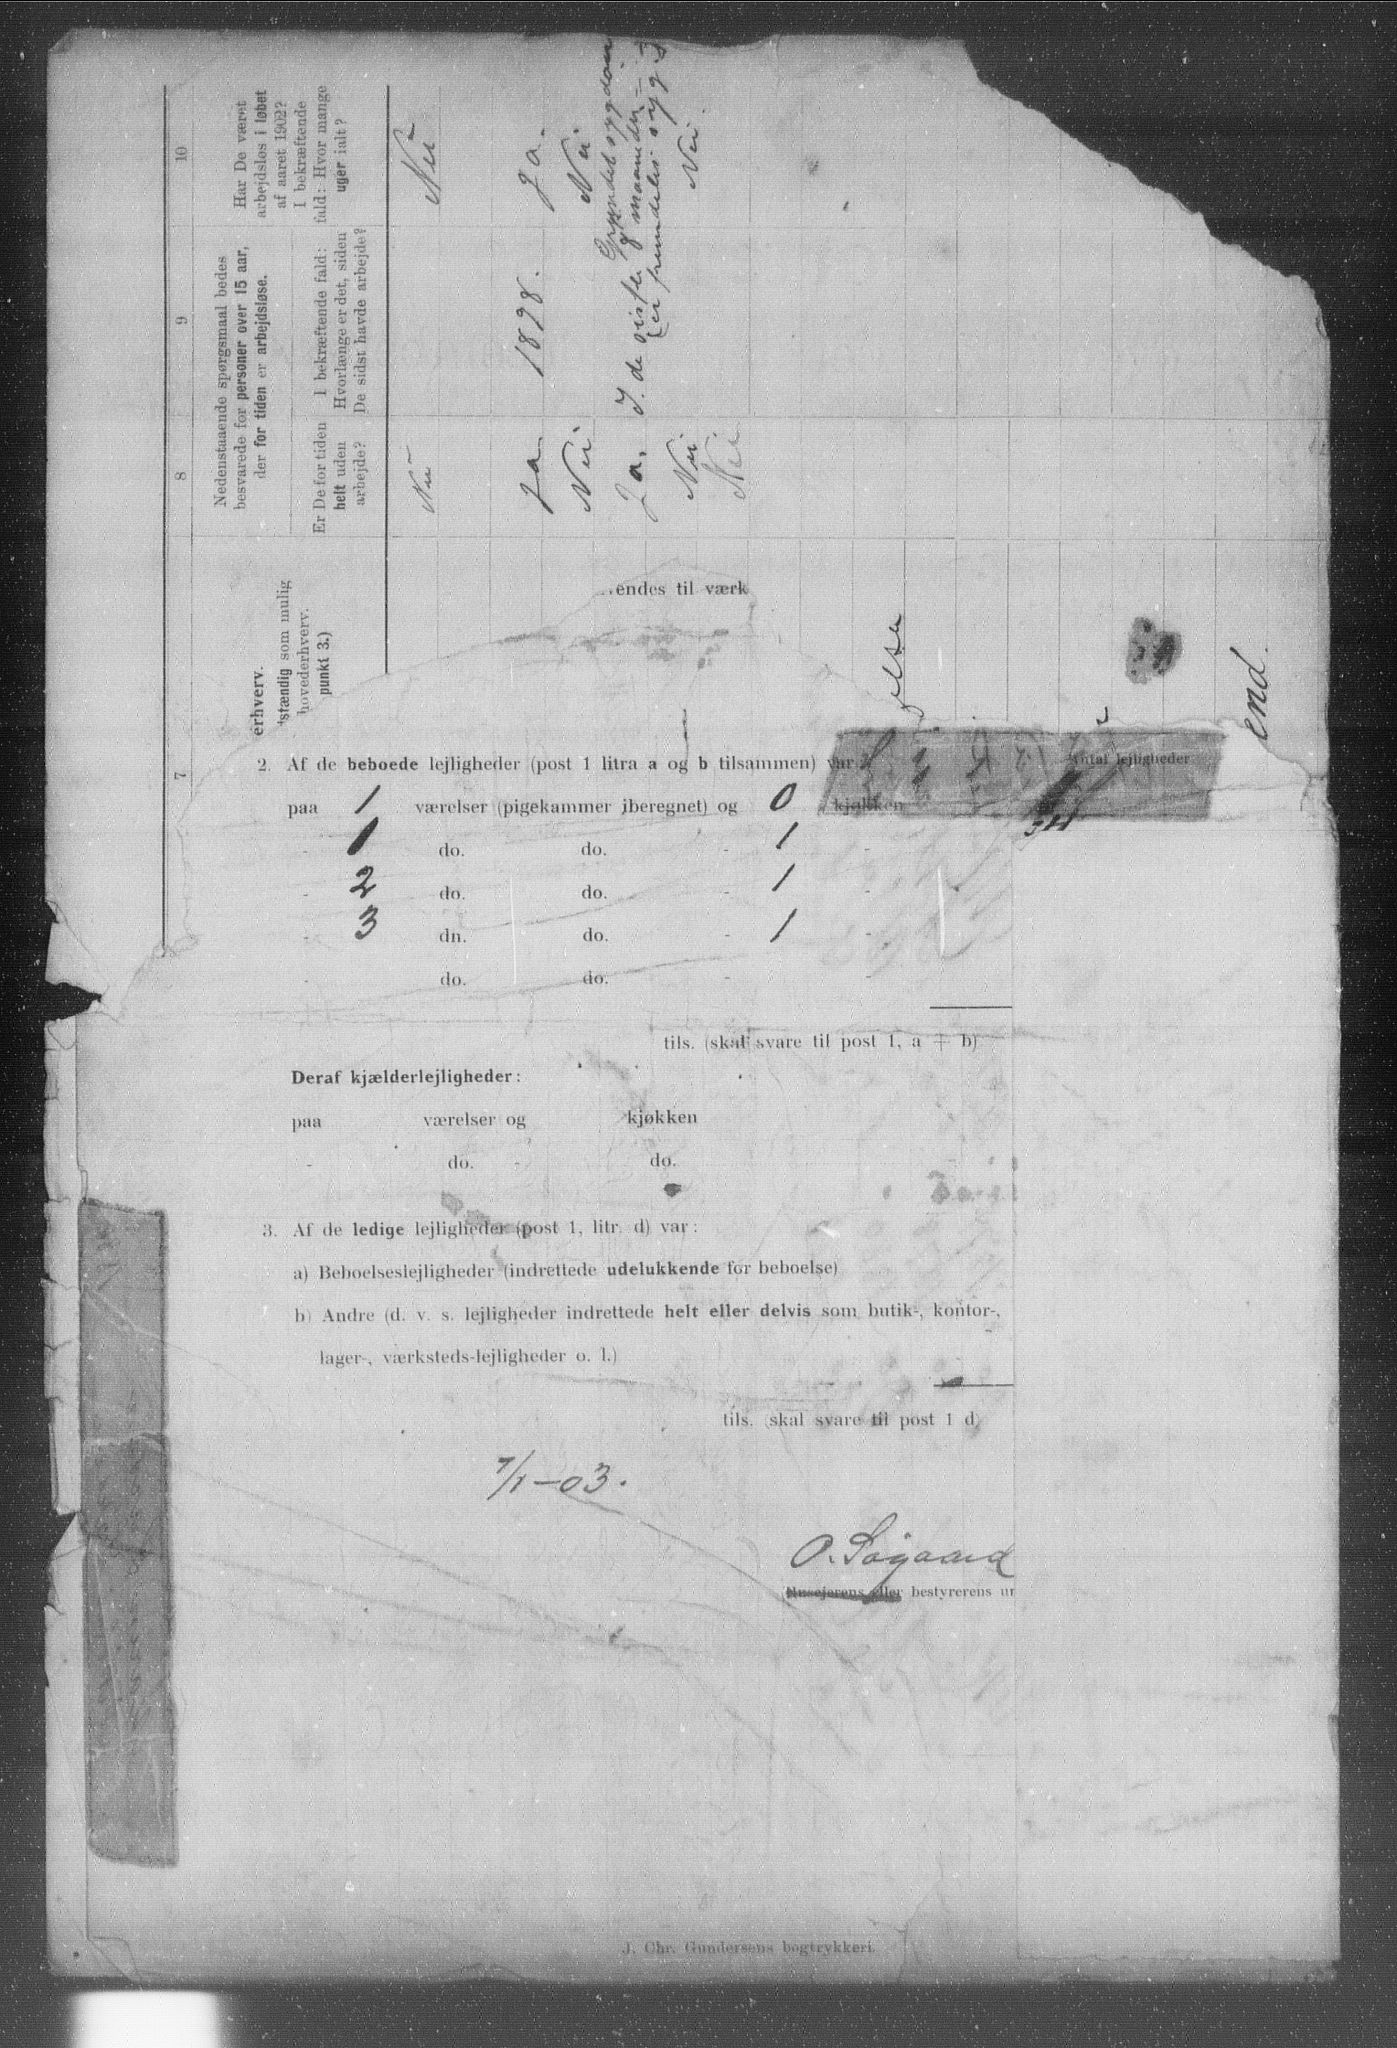 7
8
9
10
erhverv.
stændig som mulig
hovederhverv.
punkt 3.)
Nedenstaaende spørgsmaal bedes
besvarede for personer over 15 aar,
der for tiden er arbejdsløse.
Er De for tiden
helt uden
arbejde?
I bekræftende fald:
Hvorlænge er det, siden
De sidst havde arbejde?
Har De været
arbejdsløs i løbet
af aaret 1902?
I bekræftende
fald: Hvor mange
uger ialt?
Nei Nei
Ja 1898. Ja.
Nei Nei
Ja. I de siste 8 maaneder
(er fremdeles syg
Nei Nei
Nei
endes til værk
end.
2. Af de beboede lejligheder (post 1 litra a og b tilsammen) var
Antal lejligheder
paa 1 værelser (pigekammer iberegnet) og 0 kjøkken
- 1 do. do. - 1 -
- 2 do. do. - 1 -
- 3 do. do. - 1 -
- do. do. - -
tils. (skal svare til post 1, a + b)
Deraf kjælderlejligheder:
paa værelser og kjøkken
- do. - do.
3. Af de ledige lejligheder (post 1, litr. d) var:
a) Beboelseslejligheder (indrettede udelukkende for beboelse)
b) Andre (d. v. s. lejligheder indrettede helt eller delvis som butik-, kontor-,
lager-, værksteds-lejligheder o. l.)
tils. (skal svare til post 1 d)
7/1-03.
O. Søgaard
Husejerens eller bestyrerens un
J. Chr. Gundersens bogtrykkeri.